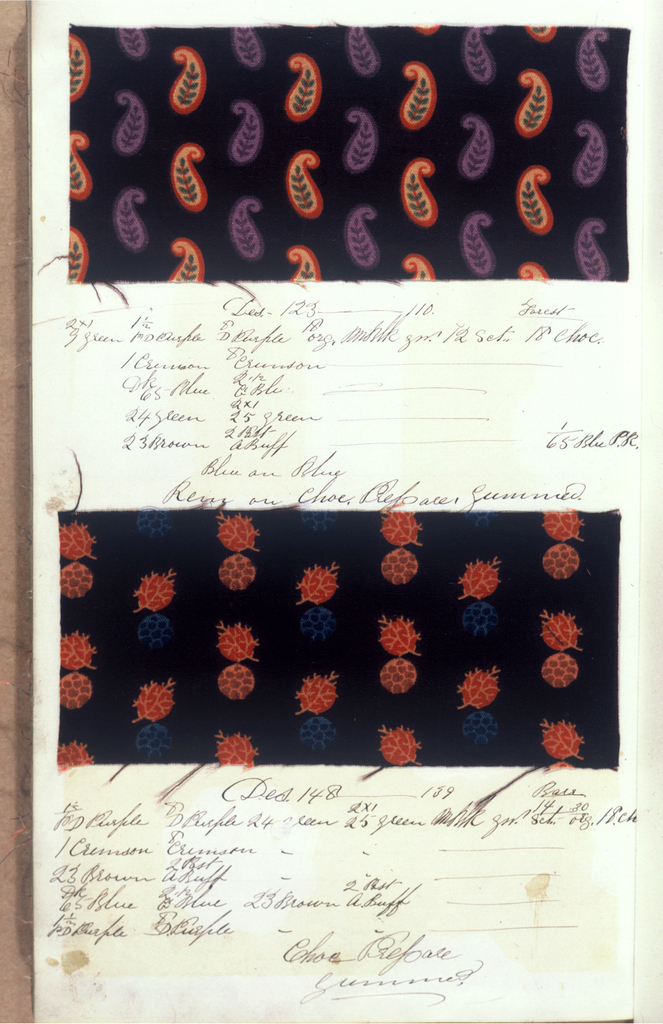 Des. 123 — 110. Forest
2x1 1½ 8 18
9 green PD Purple D Purple org. 12 Set. 18 Choc.
1 Crimson 8 Crimson
Dk 65 Blue 2.12 B Blu
24 green 2x1 25 green
23 Brown 2 Pst A Buff 1 65 Blue P.R.
Blue on Blue
on Choc. Prepare, gummed.
Des. 148 — 139 Base
1½ PD Purple 8 D Purple 24 green 2x1 25 green 14 Set. 30 org. 18 ch
1 Crimson 8 Crimson " "
23 Brown 2 Pst A Buff " "
Dk 65 Blue 2.12 B Blue 23 Brown 2 Pst A Buff
1½ PD Purple 8 D. Purple " "
Choc Prepare
gummed